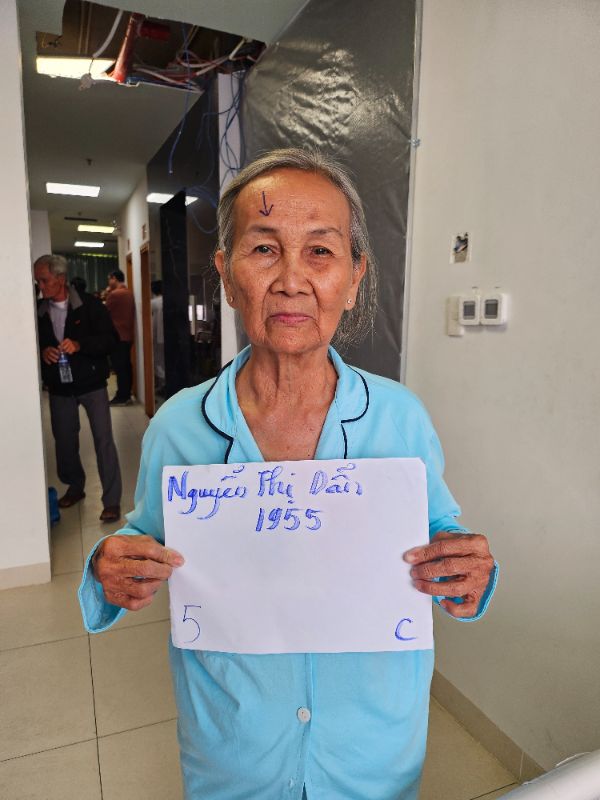 Nguyễn Thị Dẩn
1955
5 C